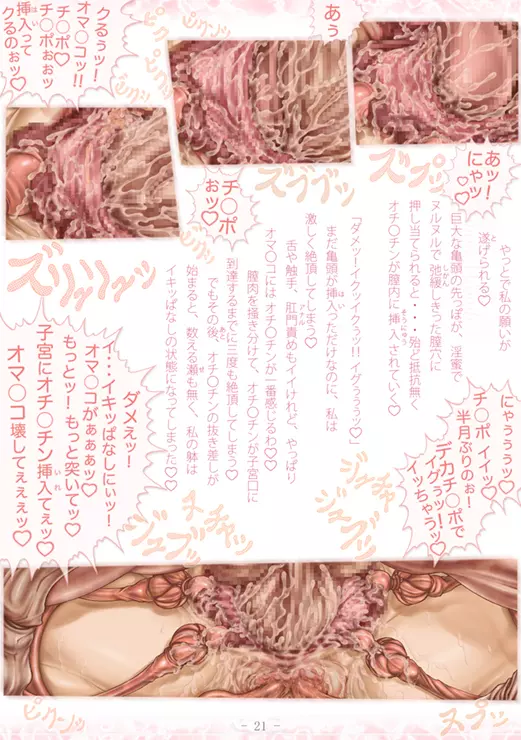 あぅ
ピクンッ
ピクピクッ
クるぅッ!
オマ〇コッ!!
チ〇ポ♡
チ〇ポぉぉッ
挿入って
クるのぉッ♡
あッ!
にゃッ♡
ズプッ
チ〇ポ
おッ♡
ズブブッ
ズリッリリッ
やっとで私の願いが
遂げられる♡
巨大な亀頭の先っぽが、淫蜜で
ヌルヌルで弛緩しきった膣穴に
押し当てられると・・・殆ど抵抗無く
オチ〇チンが膣内に挿入されていく♡
「ダメッーイクッイクぅッ!!イグぅぅぅッ♡」
まだ亀頭が挿入っただけなのに、私は
激しく絶頂してしまう♡
舌や触手、肛門責めもイイけれど、やっぱり
オマ〇コにはオチ〇チンが一番感じるわ♡
膣肉を掻き分けて、オチ〇チンが子宮口に
到達するまでに三度も絶頂してしまう♡
でもその後、オチ〇チンの抜き差しが
始まると、数える瀬も無く、私の躰は
イキッぱなしの状態になってしまった♡
チ〇ポイイッ♡
半月ぶりのぉ!
デカチ〇ポで
イグぅッ!
イッちゃうッ♡
ダメえッ!
イ・・・イキッぱなしにぃッ!
オマ〇コがぁぁぁッ♡
もっとッ!もっと突いてッ♡
子宮にオチ〇チン挿入てぇッ♡
オマ〇コ壊してぇぇぇッ♡
ヌチャッ
ジュブッ
ピクンッ
ヌプッ
- 21 -